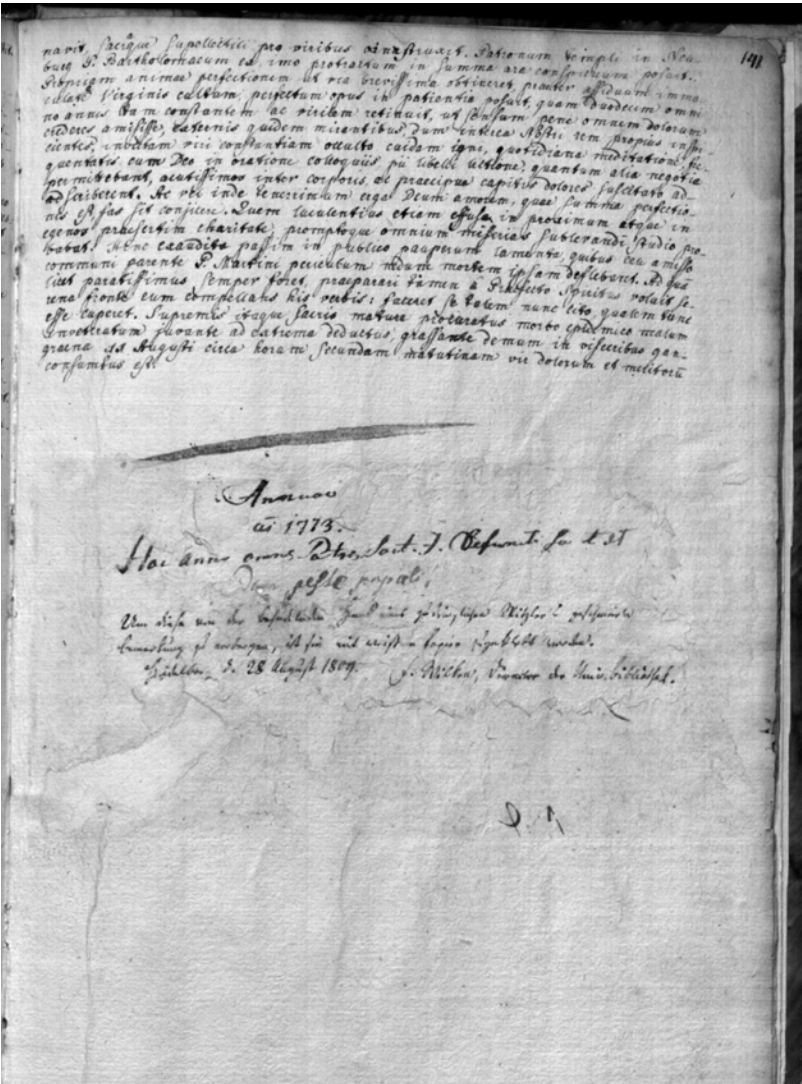 141
navit, sacrique supellectili pro viribus
burg S. Bartholomaeum ea imo protractum in summa ara conspicuum posuit.
Propriam animae perfectionem ut via brevissima obtineret, praeter assiduum imma-
culatae Virginis cultum, perfectum opus in patientia posuit, quam duodecim omni-
no annis tam constantem ac virilem retinuit, ut sensum pene omnem dolorum
crederes amisisse, externis quidem mirantibus, dum interea Nostri rem propius inspi-
cientes, invictam viri constantiam occulto cuidam igni, quotidiana meditatione, fre-
quentatis cum Deo in oratione colloquiis pii libelli lectione, quantum alia negotia
permittebant, acutissimos inter corporis, ac praecipue capitis dolores suscitato ad-
scriberent. Ac vel inde tenerrimum erga Deum amorem, quae summa perfectio-
nis est, fas sit conjicere. Quem luculentius etiam effusa in proximum atque in
egenos praesertim charitate, promptoque omnium miserias sublevandi studio pro-
babat. Hinc exaudita passim in publico pauperum lamenta, quibus ceu amisso
communi parente P. Martini periculum nedum mortem ipsam deflebant. Ad quam
licet paratissimus semper foret, praeparari tamen a Praefecto Spiritus voluit se-
rena fronte eum compellans his verbis: faceret se talem nunc cito, qualem tunc
esse cuperet. Supremis itaque sacris mature procuratus morbo epidemico malum
inveteratum juvante ad extrema deductus, grassante demum in visceribus gan-
graena Augusti circa horam secundam matutinam vir dolorum et meritorū
consumtus est.
Annuae
ai 1773.
Hoc anno omnes Patres Soct. J.
peste papali,
Um diese von der
Bemerkung zu verbergen, ist sie mit weissem Papier zugeklebt worden.
Heidelberg, d. 28 August 1809. F. Wilken, Director der Univ. bibliothek.